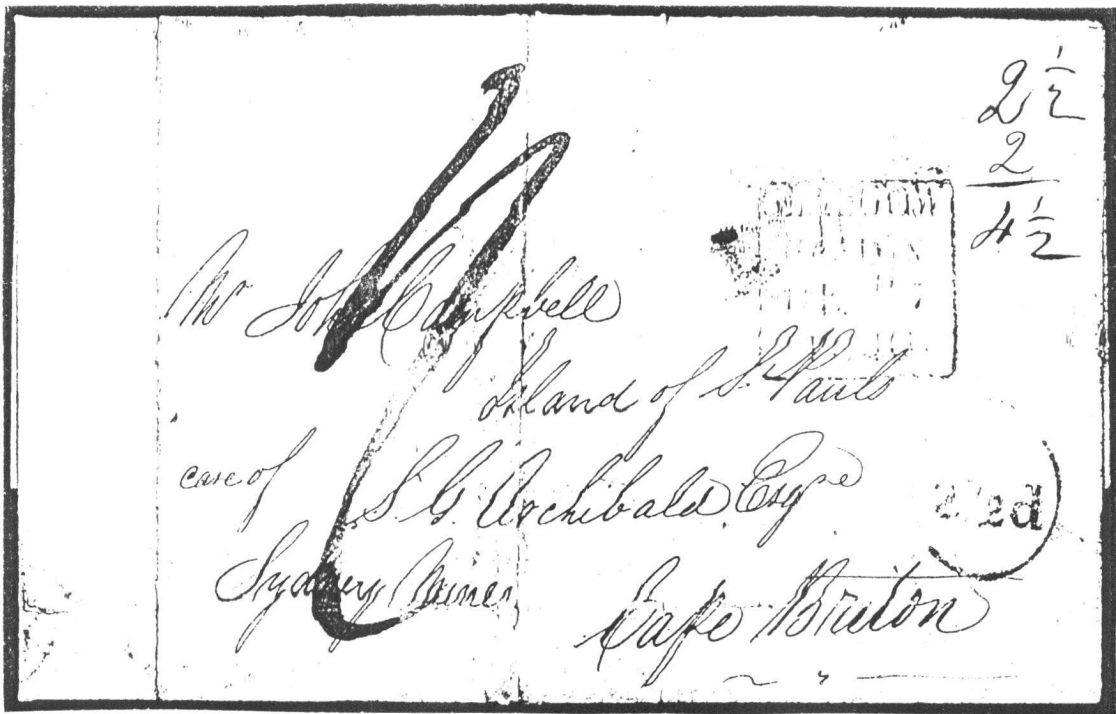 2 1/2
2
4 1/2
Mr John Campbell
Island of St Pauls
care of
S G Archibald Esqre
2 1/2d
Sydney Mines
Cape Breton